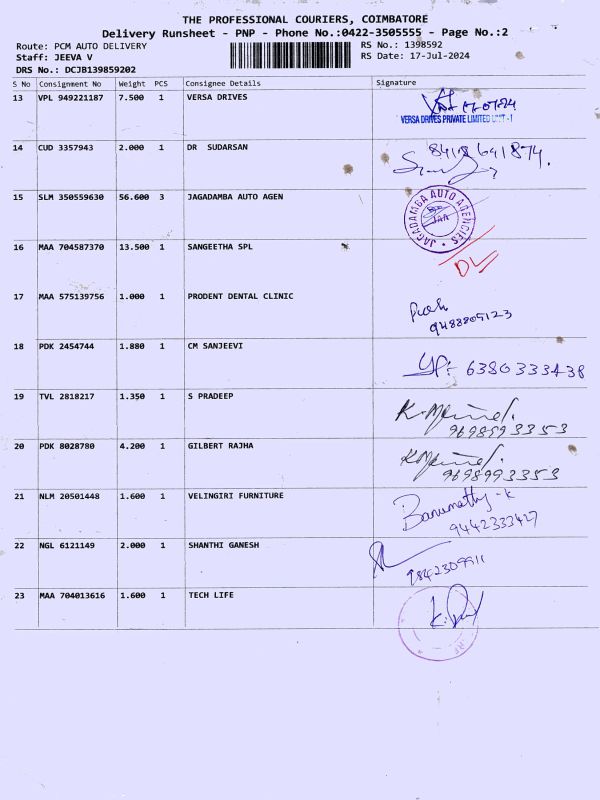 THE PROFESSIONAL COURIERS, COIMBATORE
Delivery Runsheet - PNP - Phone No.:0422-3505555 - Page No.:2
Route: PCM AUTO DELIVERY
RS No.: 1398592
Staff: JEEVA V
RS Date: 17-Jul-2024
DRS No.: DCJB139859202
S No Consignment No Weight PCS Consignee Details Signature
13 VPL 949221187 7.500 1 VERSA DRIVES
VERSA DRIVES PRIVATE LIMITED UNIT - I
14 CUD 3357943 2.000 1 DR SUDARSAN
15 SLM 350559630 56.600 3 JAGADAMBA AUTO AGEN
JAGADAMBA AUTO AGENCIES
16 MAA 704587370 13.500 1 SANGEETHA SPL
DL
17 MAA 575139756 1.000 1 PRODENT DENTAL CLINIC
9488809123
18 PDK 2454744 1.880 1 CM SANJEEVI
6380333438
19 TVL 2818217 1.350 1 S PRADEEP
9698993353
20 PDK 8028780 4.200 1 GILBERT RAJHA
9698993353
21 NLM 20501448 1.600 1 VELINGIRI FURNITURE
Banumathy - K
9442333427
22 NGL 6121149 2.000 1 SHANTHI GANESH
9842309911
23 MAA 704013616 1.600 1 TECH LIFE